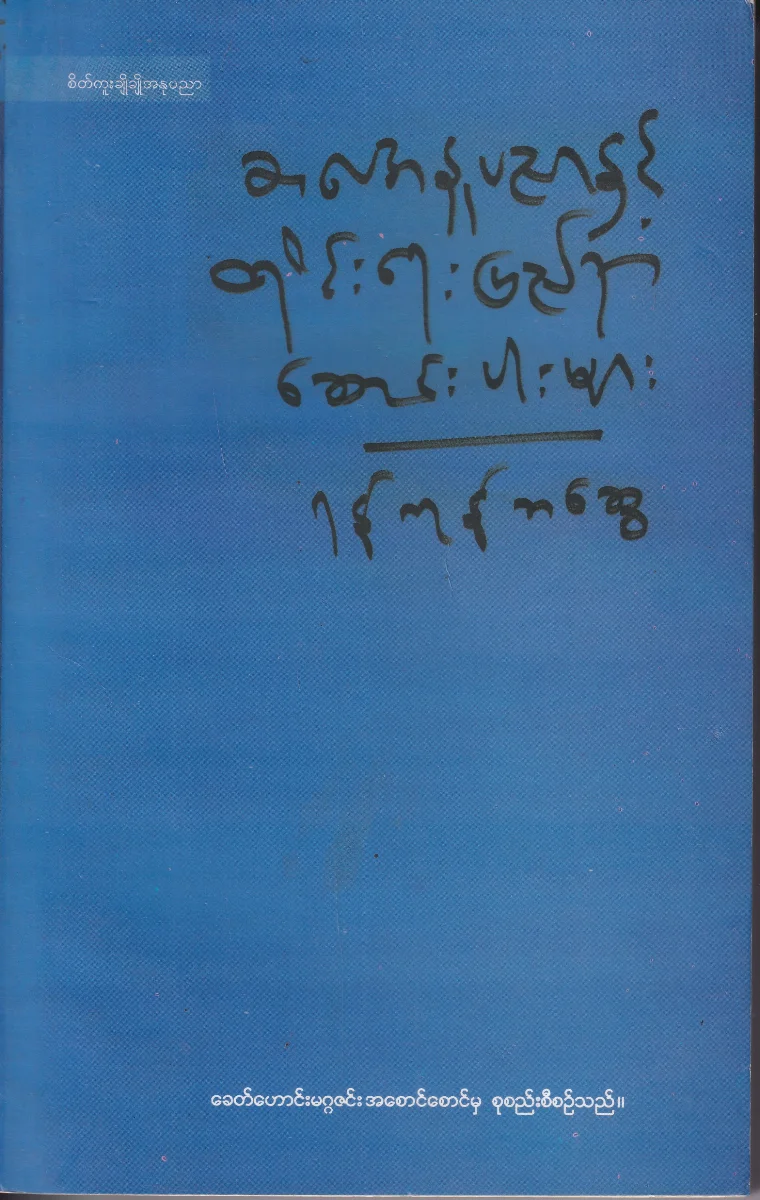 စိတ်ကူးချိုချိုအနုပညာ
အနုပညာနှင့်
တိုင်းရေးပြည်ရာ
ဆောင်းပါးများ
ရန်ကုန်ဘဆွေ
ခေတ်ဟောင်းမဂ္ဂဇင်း အစောင်စောင်မှ စုစည်းစီစဉ်သည်။